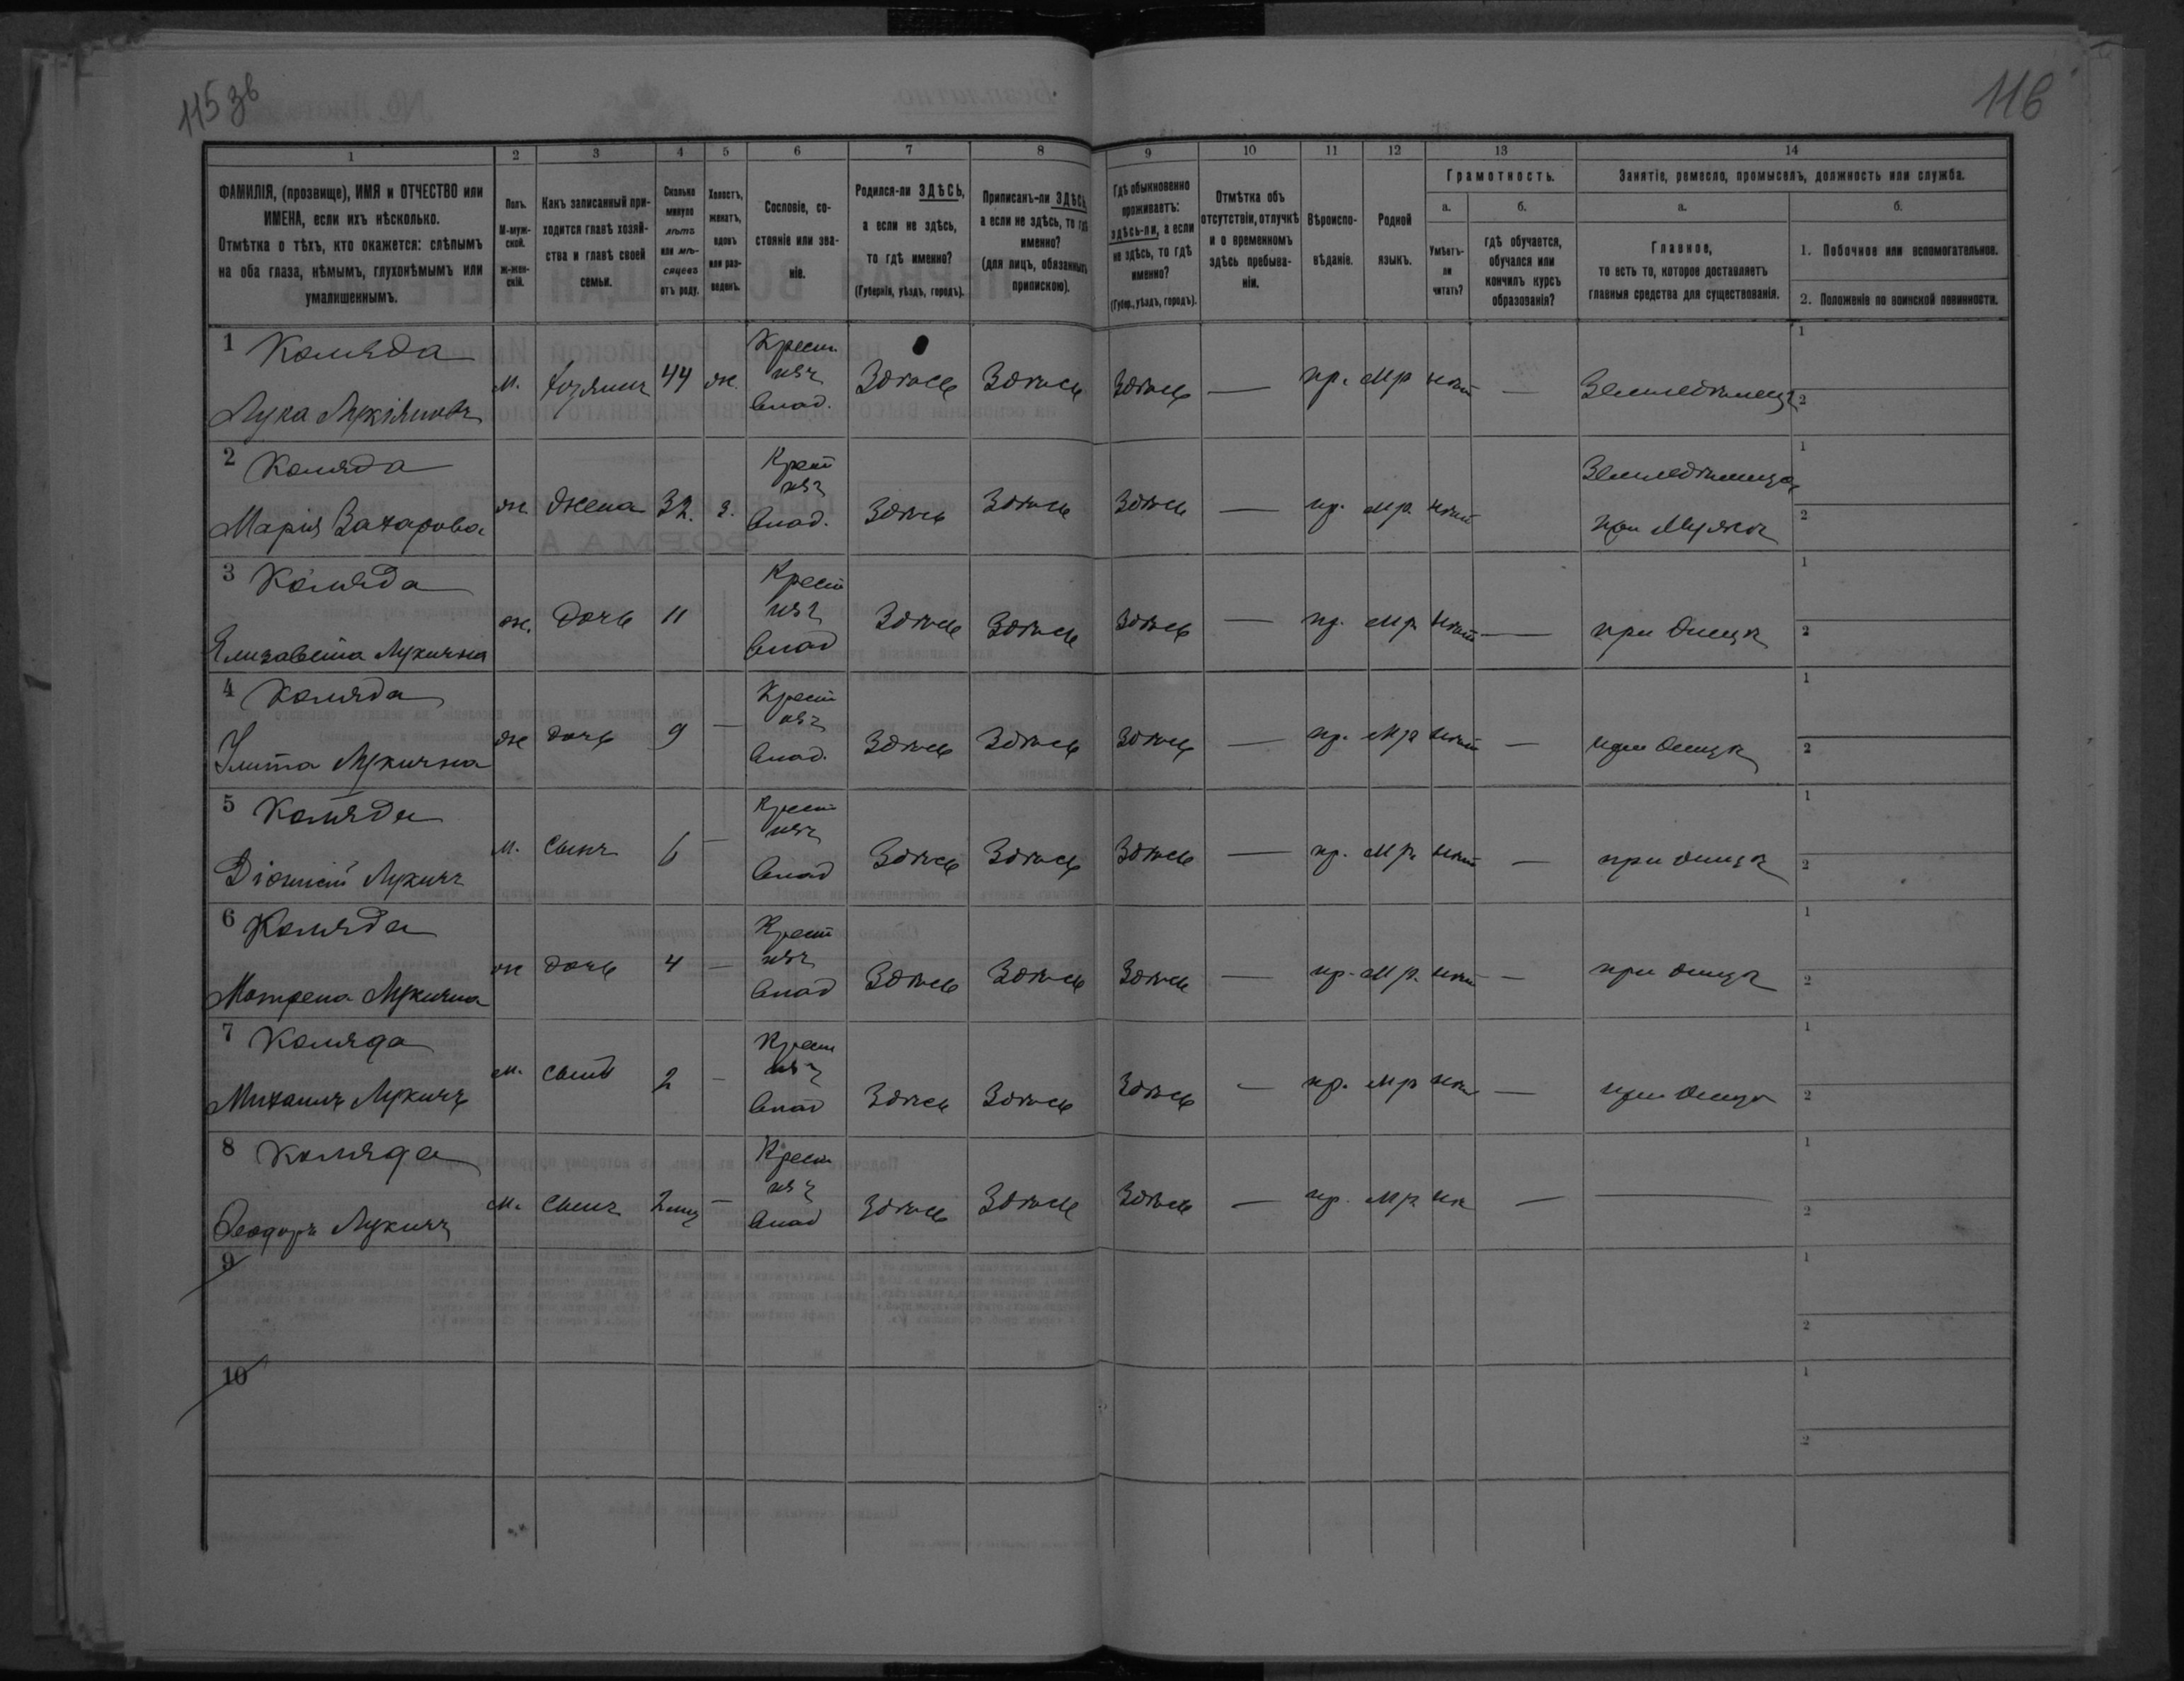 115 зв
116
1 2 3 4 5 6 7 8 9 10 11 12 13 14
ФАМИЛІЯ, (прозвище), ИМЯ и ОТЧЕСТВО или
ИМЕНА, если ихъ нѣсколько.
Отмѣтка о тѣхъ, кто окажется: слѣпымъ
на оба глаза, нѣмымъ, глухонѣмымъ или
умалишеннымъ.
Полъ.
М-муж-
ской.
ж-жен-
скій.
Какъ записанный при-
ходится главѣ хозяй-
ства и главѣ своей
семьи.
Сколько
минуло
лѣтъ
или мѣ-
сяцевъ
отъ роду.
Холостъ,
женатъ,
вдовъ
или раз-
веденъ.
Сословіе, со-
стояніе или зва-
ніе.
Родился-ли ЗДѢСЬ,
а если не здѣсь,
то гдѣ именно?
(Губернія, уѣздъ, городъ).
Приписанъ-ли ЗДѢСЬ,
а если не здѣсь, то гдѣ
именно?
(для лицъ, обязанныхъ
припискою).
Гдѣ обыкновенно
проживаетъ:
здѣсь-ли, а если
не здѣсь, то гдѣ
именно?
(Губер., уѣздъ, городъ).
Отмѣтка объ
отсутствіи, отлучкѣ
и о временномъ
здѣсь пребыва-
ніи.
Вѣроиспо-
вѣданіе.
Родной
языкъ.
Грамотность.
а.
Умѣетъ-
ли
читать?
б.
гдѣ обучается,
обучался или
кончилъ курсъ
образованія?
Занятіе, ремесло, промыселъ, должность или служба.
а.
Главное,
то есть то, которое доставляетъ
главныя средства для существованія.
б.
1. Побочное или вспомогательное.
2. Положеніе по воинской повинности.
1 Коляда
Лука Лукіяновъ
м. хозяинъ 44 ж. Крест. изъ влад. Здѣсь Здѣсь Здѣсь — пр. мр нѣт — Земледѣлецъ
1
2
2 Коляда
Марія Захарова
ж. жена 32. з. Крест изъ влад. Здѣсь Здѣсь Здѣсь — пр. мр. нѣт Земледѣлица при Мужѣ
1
2
3 Коляда
Елизавета Лукична
ж. дочь 11 Крест изъ влад Здѣсь Здѣсь Здѣсь — пр. мр нѣт — при отцѣ
1
2
4 Коляда
Улита Лукична
ж дочь 9 — Крест изъ влад. Здѣсь Здѣсь Здѣсь — пр. мр нѣт — при отцѣ
1
2
5 Коляда
Діонисій Лукичъ
м. сынъ 6 — Крест изъ влад Здѣсь Здѣсь Здѣсь — пр. мр. нѣт — при отцѣ
1
2
6 Коляда
Матрена Лукична
ж дочь 4 — Крест изъ влад Здѣсь Здѣсь Здѣсь — пр. мр. нѣт — при отцѣ
1
2
7 Коляда
Михаилъ Лукичъ
м. сынъ 2 — Крест изъ влад Здѣсь Здѣсь Здѣсь — пр. мр нѣт — при отцѣ
1
2
8 Коляда
Феодоръ Лукичъ
м. сынъ — Крест изъ влад Здѣсь Здѣсь Здѣсь — пр. мр — —
1
2
9
1
2
10
1
2